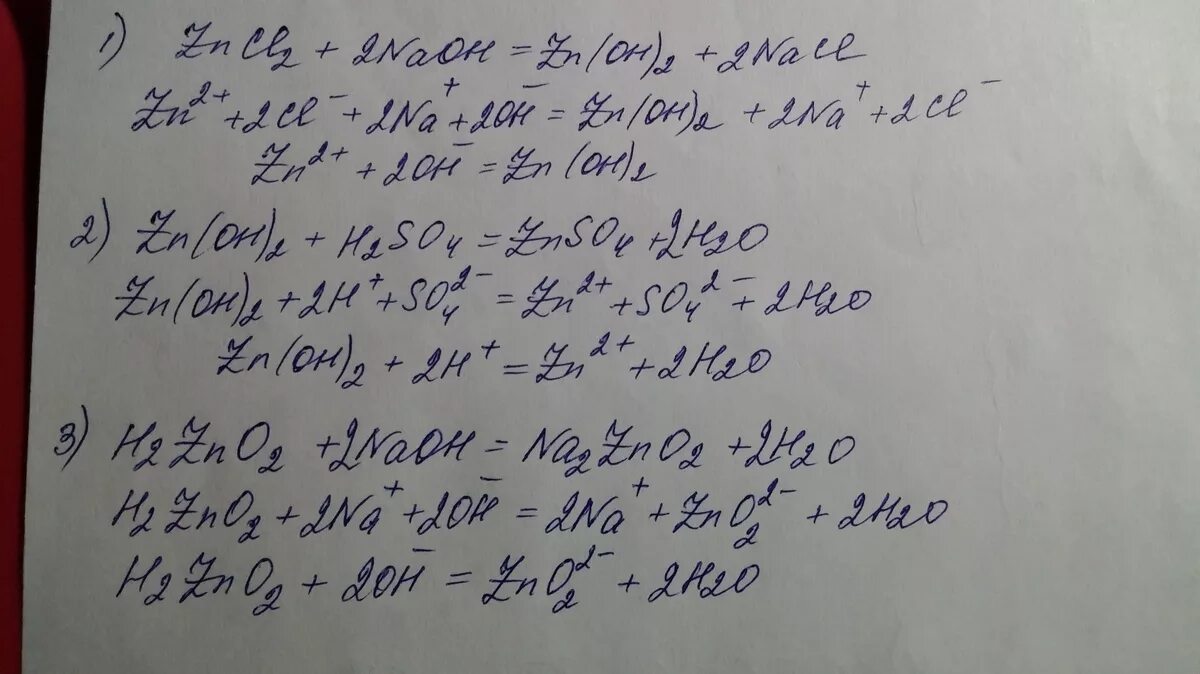 1) ZnCl₂ + 2NaOH = Zn(OH)₂ + 2NaCl
Zn²⁺ + 2Cl⁻ + 2Na⁺ + 2OH⁻ = Zn(OH)₂ + 2Na⁺ + 2Cl⁻
Zn²⁺ + 2OH⁻ = Zn(OH)₂
2) Zn(OH)₂ + H₂SO₄ = ZnSO₄ + 2H₂O
Zn(OH)₂ + 2H⁺ + SO₄²⁻ = Zn²⁺ + SO₄²⁻ + 2H₂O
Zn(OH)₂ + 2H⁺ = Zn²⁺ + 2H₂O
3) H₂ZnO₂ + 2NaOH = Na₂ZnO₂ + 2H₂O
H₂ZnO₂ + 2Na⁺ + 2OH⁻ = 2Na⁺ + ZnO₂²⁻ + 2H₂O
H₂ZnO₂ + 2OH⁻ = ZnO₂²⁻ + 2H₂O